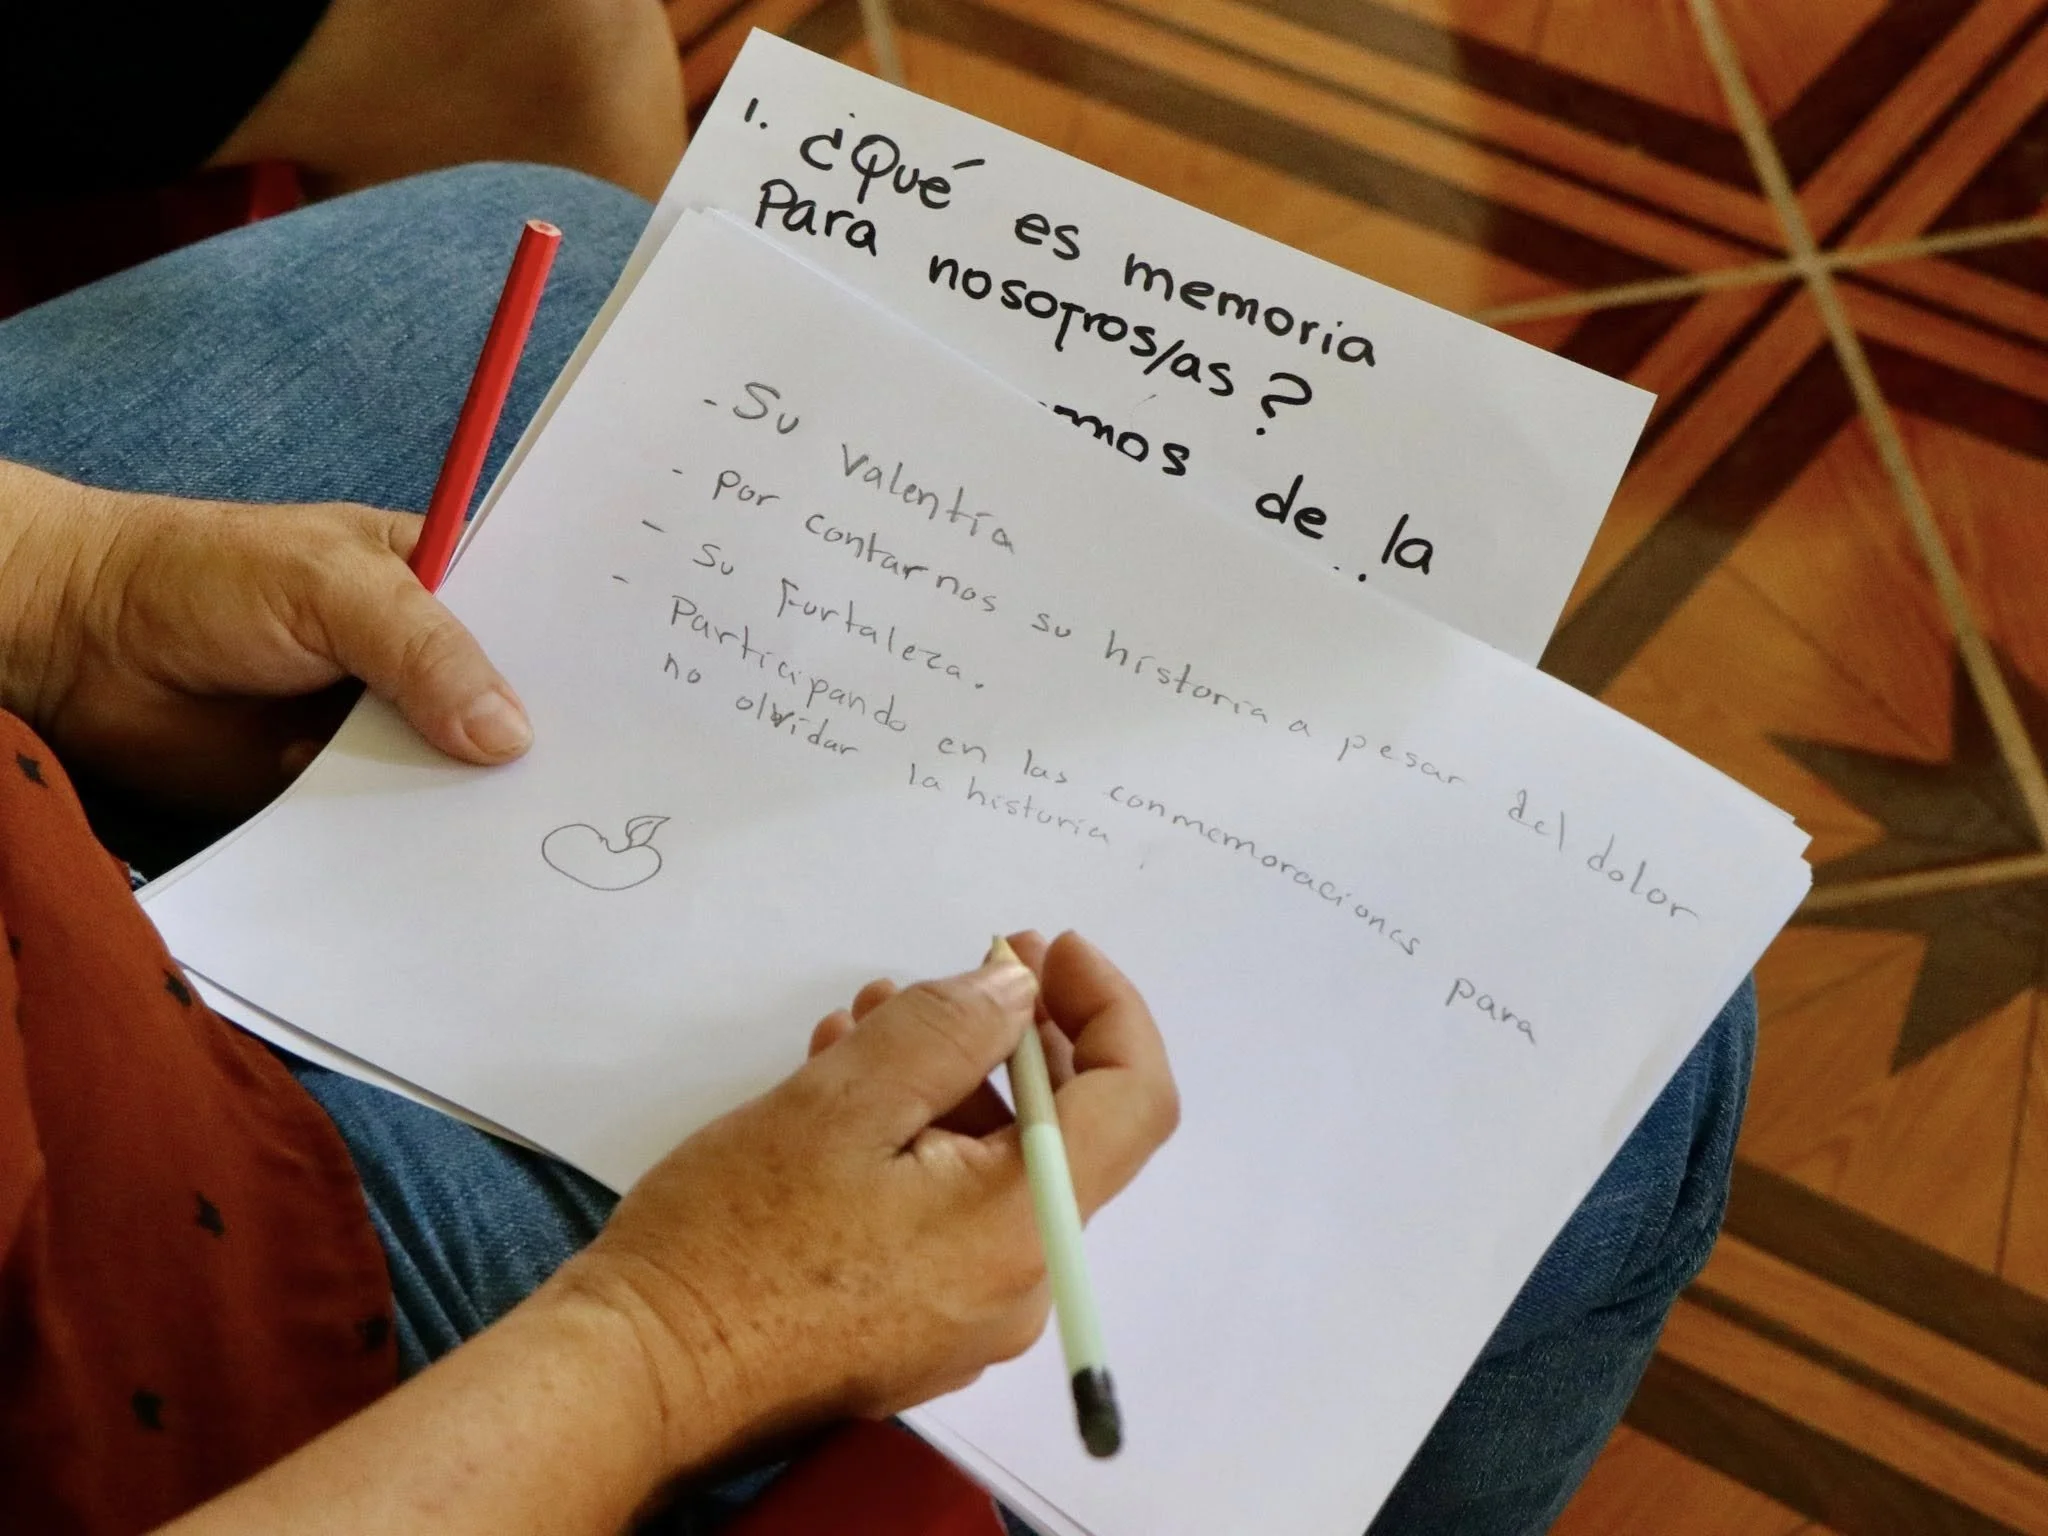 1. ¿Qué es memoria
para nosotros/as?
mos de la
- Su valentía
- por contarnos su historia a pesar del dolor
- Su Furtaleza.
- Participando en las conmemoraciones para
no olvidar la historia.